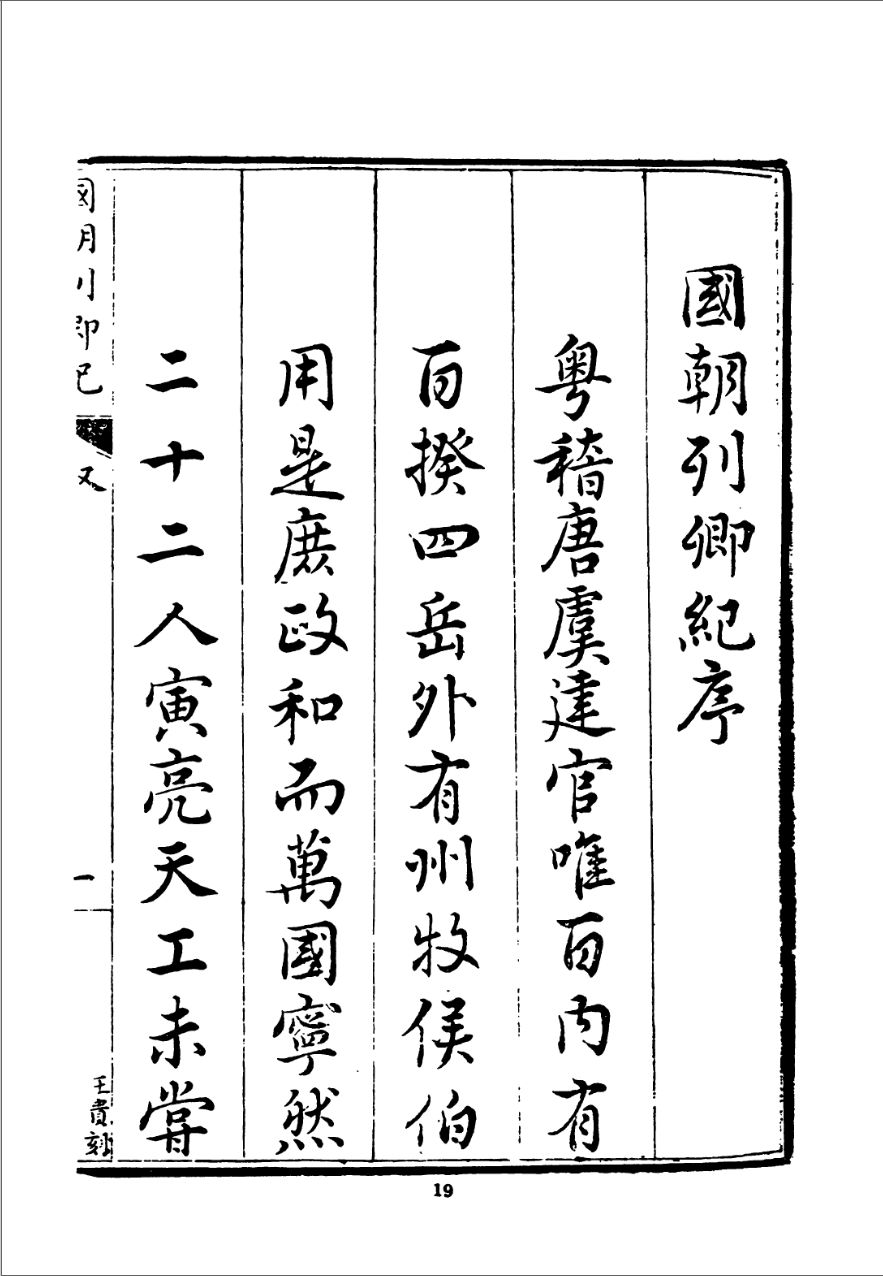 國朝列卿紀序
粤稽唐虞建官唯百内有
百揆四岳外有州牧侯伯
用是庶政和而萬國寧然
二十二人寅亮天工未嘗
國朝列卿紀
又
一
王貴刻
19